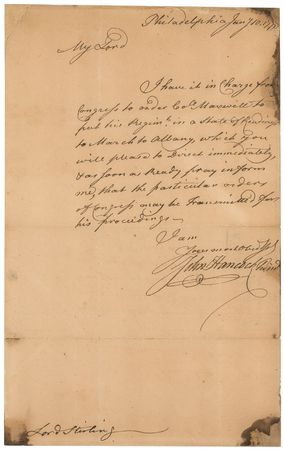 Philadelphia Jany 10.
My Lord
I have it in Charge from
Congress to order Col. Maxwell to
put his Regimt. in a State of Readiness
to March to Albany, which you
will please to Direct immediately,
& as soon as Ready pray inform
me, that the particular orders
of Congress may be Transmitted for
his proceedings
I am
Your most
John Hancock Presidt
Lord Stirling